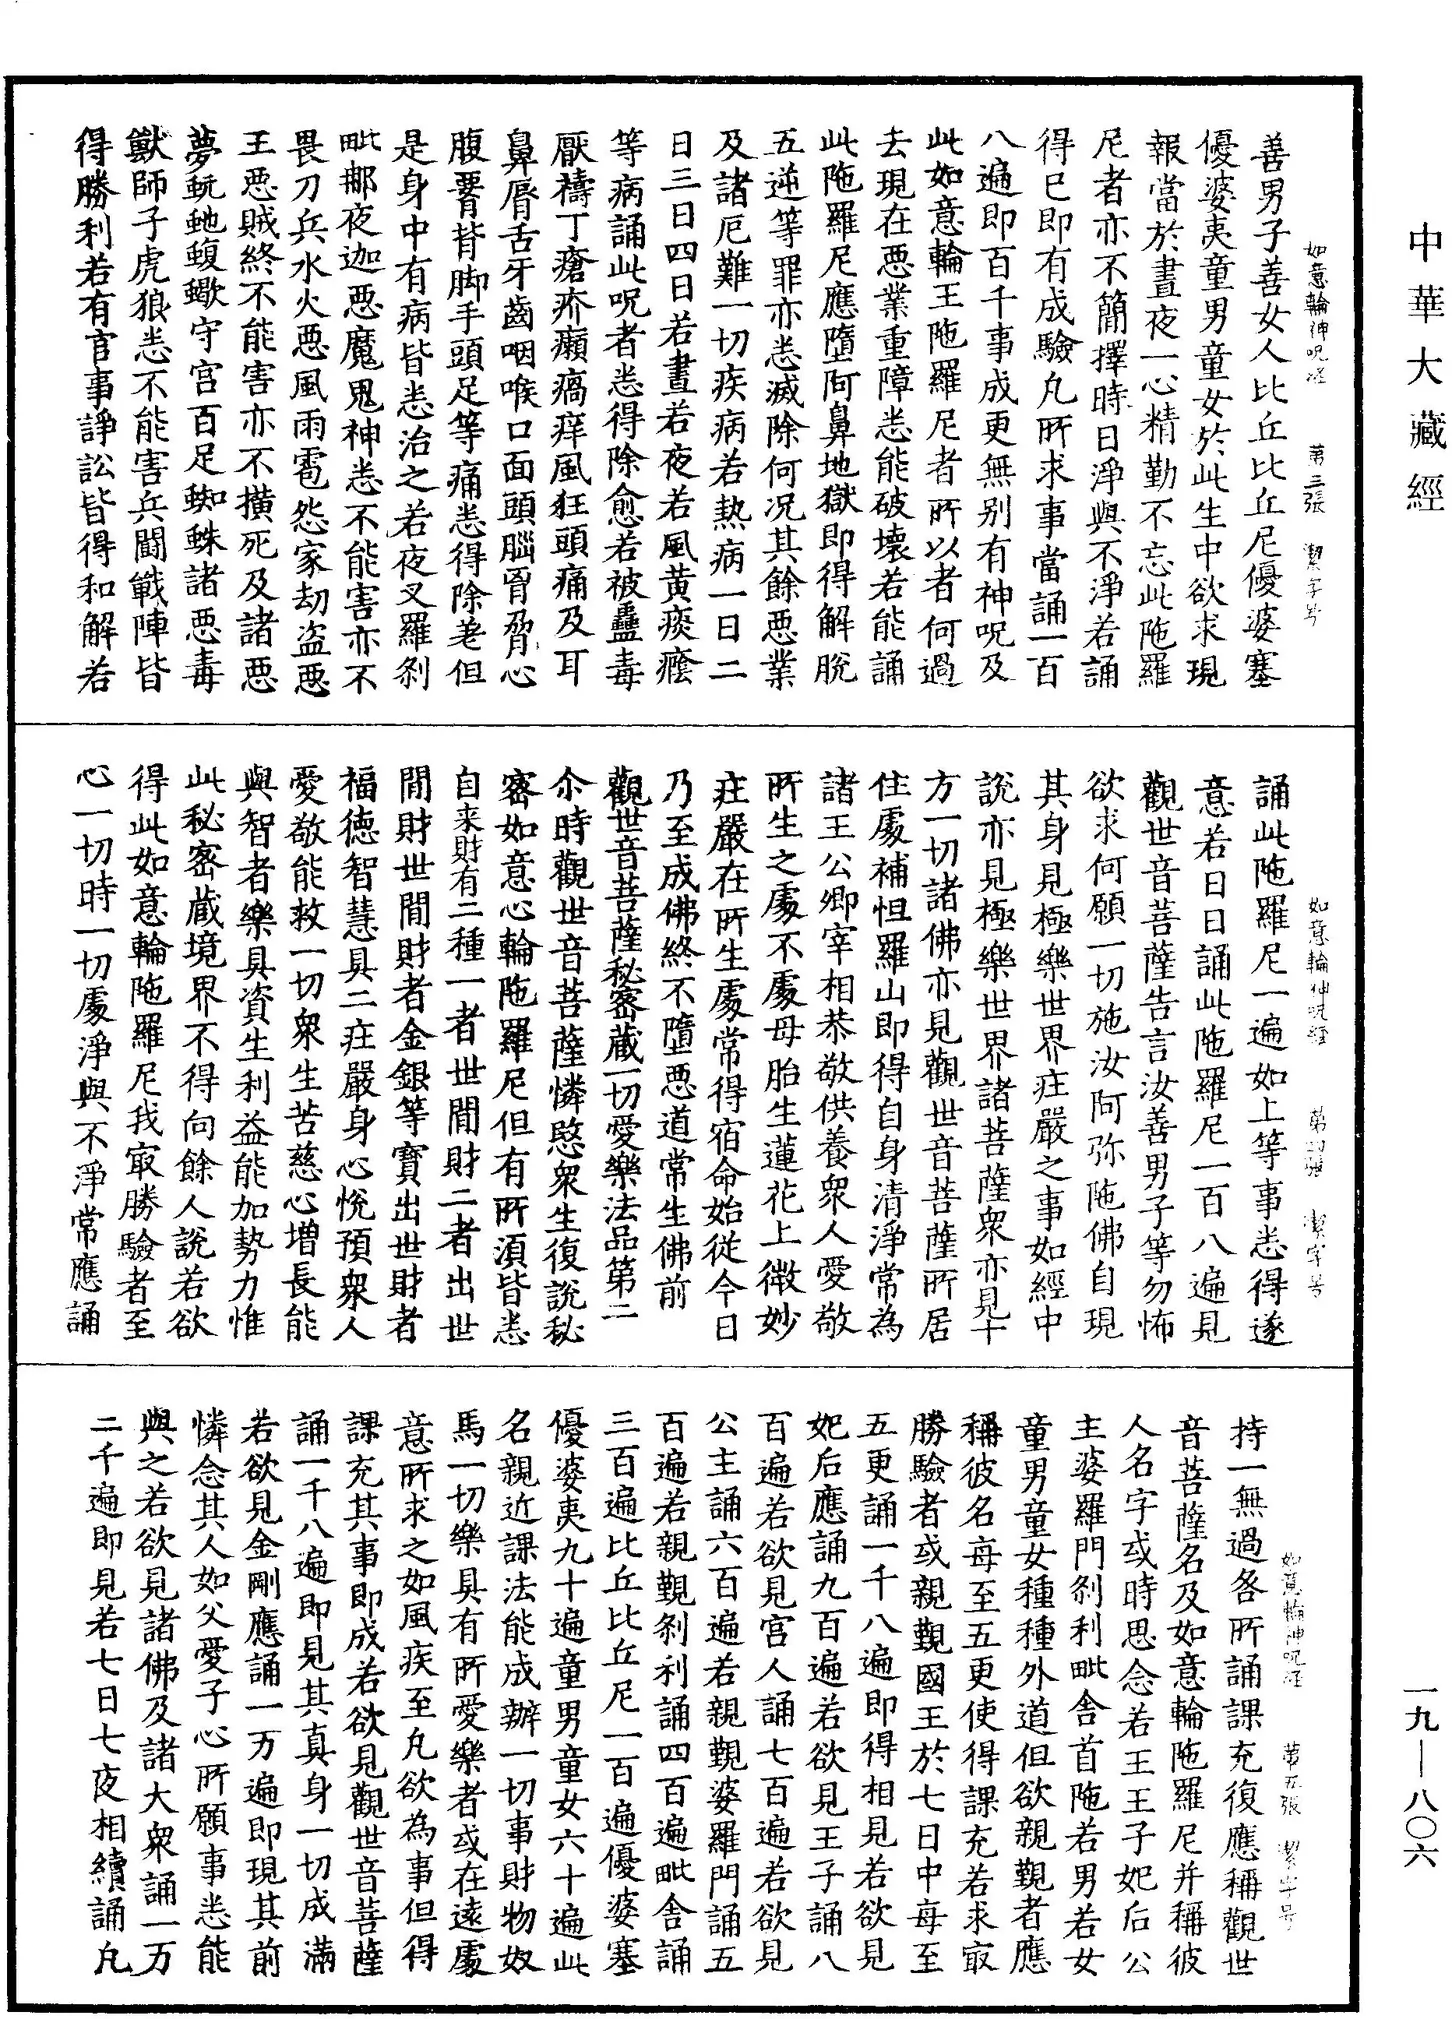 中華大藏經
一九—八〇六
如意輪神呪經 第三張 潔字号
善男子善女人比丘比丘尼優婆塞
優婆夷童男童女於此生中欲求現
報當於晝夜一心精勤不忘此陁羅
尼者亦不簡擇時日淨與不淨若誦
得已即有成驗凡所求事當誦一百
八遍即百千事成更無別有神呪及
此如意輪王陁羅尼者所以者何過
去現在惡業重障悉能破壞若能誦
此陁羅尼應墮阿鼻地獄即得解脫
五逆等罪亦悉滅除何況其餘惡業
及諸厄難一切疾病若熱病一日二
日三日四日若晝若夜若風黃痰癊
等病誦此呪者悉得除愈若被蠱毒
厭禱丁瘡疥癩癎痒風狂頭痛及耳
鼻脣舌牙齒咽喉口面頭腦胷脅心
腹署背脚手頭足等痛悉得除差但
是身中有病皆悉治之若夜叉羅刹
毗那夜迦惡魔鬼神悉不能害亦不
畏刀兵水火惡風雨雹怨家劫盜惡
王惡賊終不能害亦不橫死及諸惡
夢蚖虵蝮蠍守宮百足蜘蛛諸惡毒
獸師子虎狼悉不能害兵鬬戰陣皆
得勝利若有官事諍訟皆得和解若
如意輪神呪經 第四張 潔字号
誦此陁羅尼一遍如上等事悉得遂
意若日日誦此陁羅尼一百八遍見
觀世音菩薩告言汝善男子等勿怖
欲求何願一切施汝阿弥陁佛自現
其身見極樂世界庄嚴之事如經中
說亦見極樂世界諸菩薩衆亦見十
方一切諸佛亦見觀世音菩薩所居
住處補怛羅山即得自身清淨常為
諸王公卿宰相恭敬供養衆人愛敬
所生之處不處母胎生蓮花上微妙
庄嚴在所生處常得宿命始從今日
乃至成佛終不墮惡道常生佛前
觀世音菩薩秘密藏一切愛樂法品第二
尒時觀世音菩薩憐愍衆生復說秘
密如意心輪陁羅尼但有所須皆悉
自来財有二種一者世間財二者出世
間財世間財者金銀等寶出世財者
福德智慧具二庄嚴身心悅預衆人
愛敬能救一切衆生苦慈心增長能
與智者樂具資生利益能加勢力惟
此秘密藏境界不得向餘人說若欲
得此如意輪陁羅尼我㝡勝驗者至
心一切時一切處淨與不淨常應誦
如意輪神呪經 第五張 潔字号
持一無過各所誦課充復應稱觀世
音菩薩名及如意輪陁羅尼并稱彼
人名字或時思念若王王子妃后公
主婆羅門刹利毗舍首陁若男若女
童男童女種種外道但欲親覲者應
稱彼名每至五更使得課充若求㝡
勝驗者或親覲國王於七日中每至
五更誦一千八遍即得相見若欲見
妃后應誦九百遍若欲見王子誦八
百遍若欲見宮人誦七百遍若欲見
公主誦六百遍若親覲婆羅門誦五
百遍若親覲刹利誦四百遍毗舍誦
三百遍比丘比丘尼一百遍優婆塞
優婆夷九十遍童男童女六十遍此
名親近課法能成辦一切事財物奴
馬一切樂具有所愛樂者或在遠處
意所求之如風疾至凡欲為事但得
課充其事即成若欲見觀世音菩薩
誦一千八遍即見其真身一切成滿
若欲見金剛應誦一万遍即現其前
憐念其人如父愛子心所願事悉能
與之若欲見諸佛及諸大衆誦一万
二千遍即見若七日七夜相續誦凡